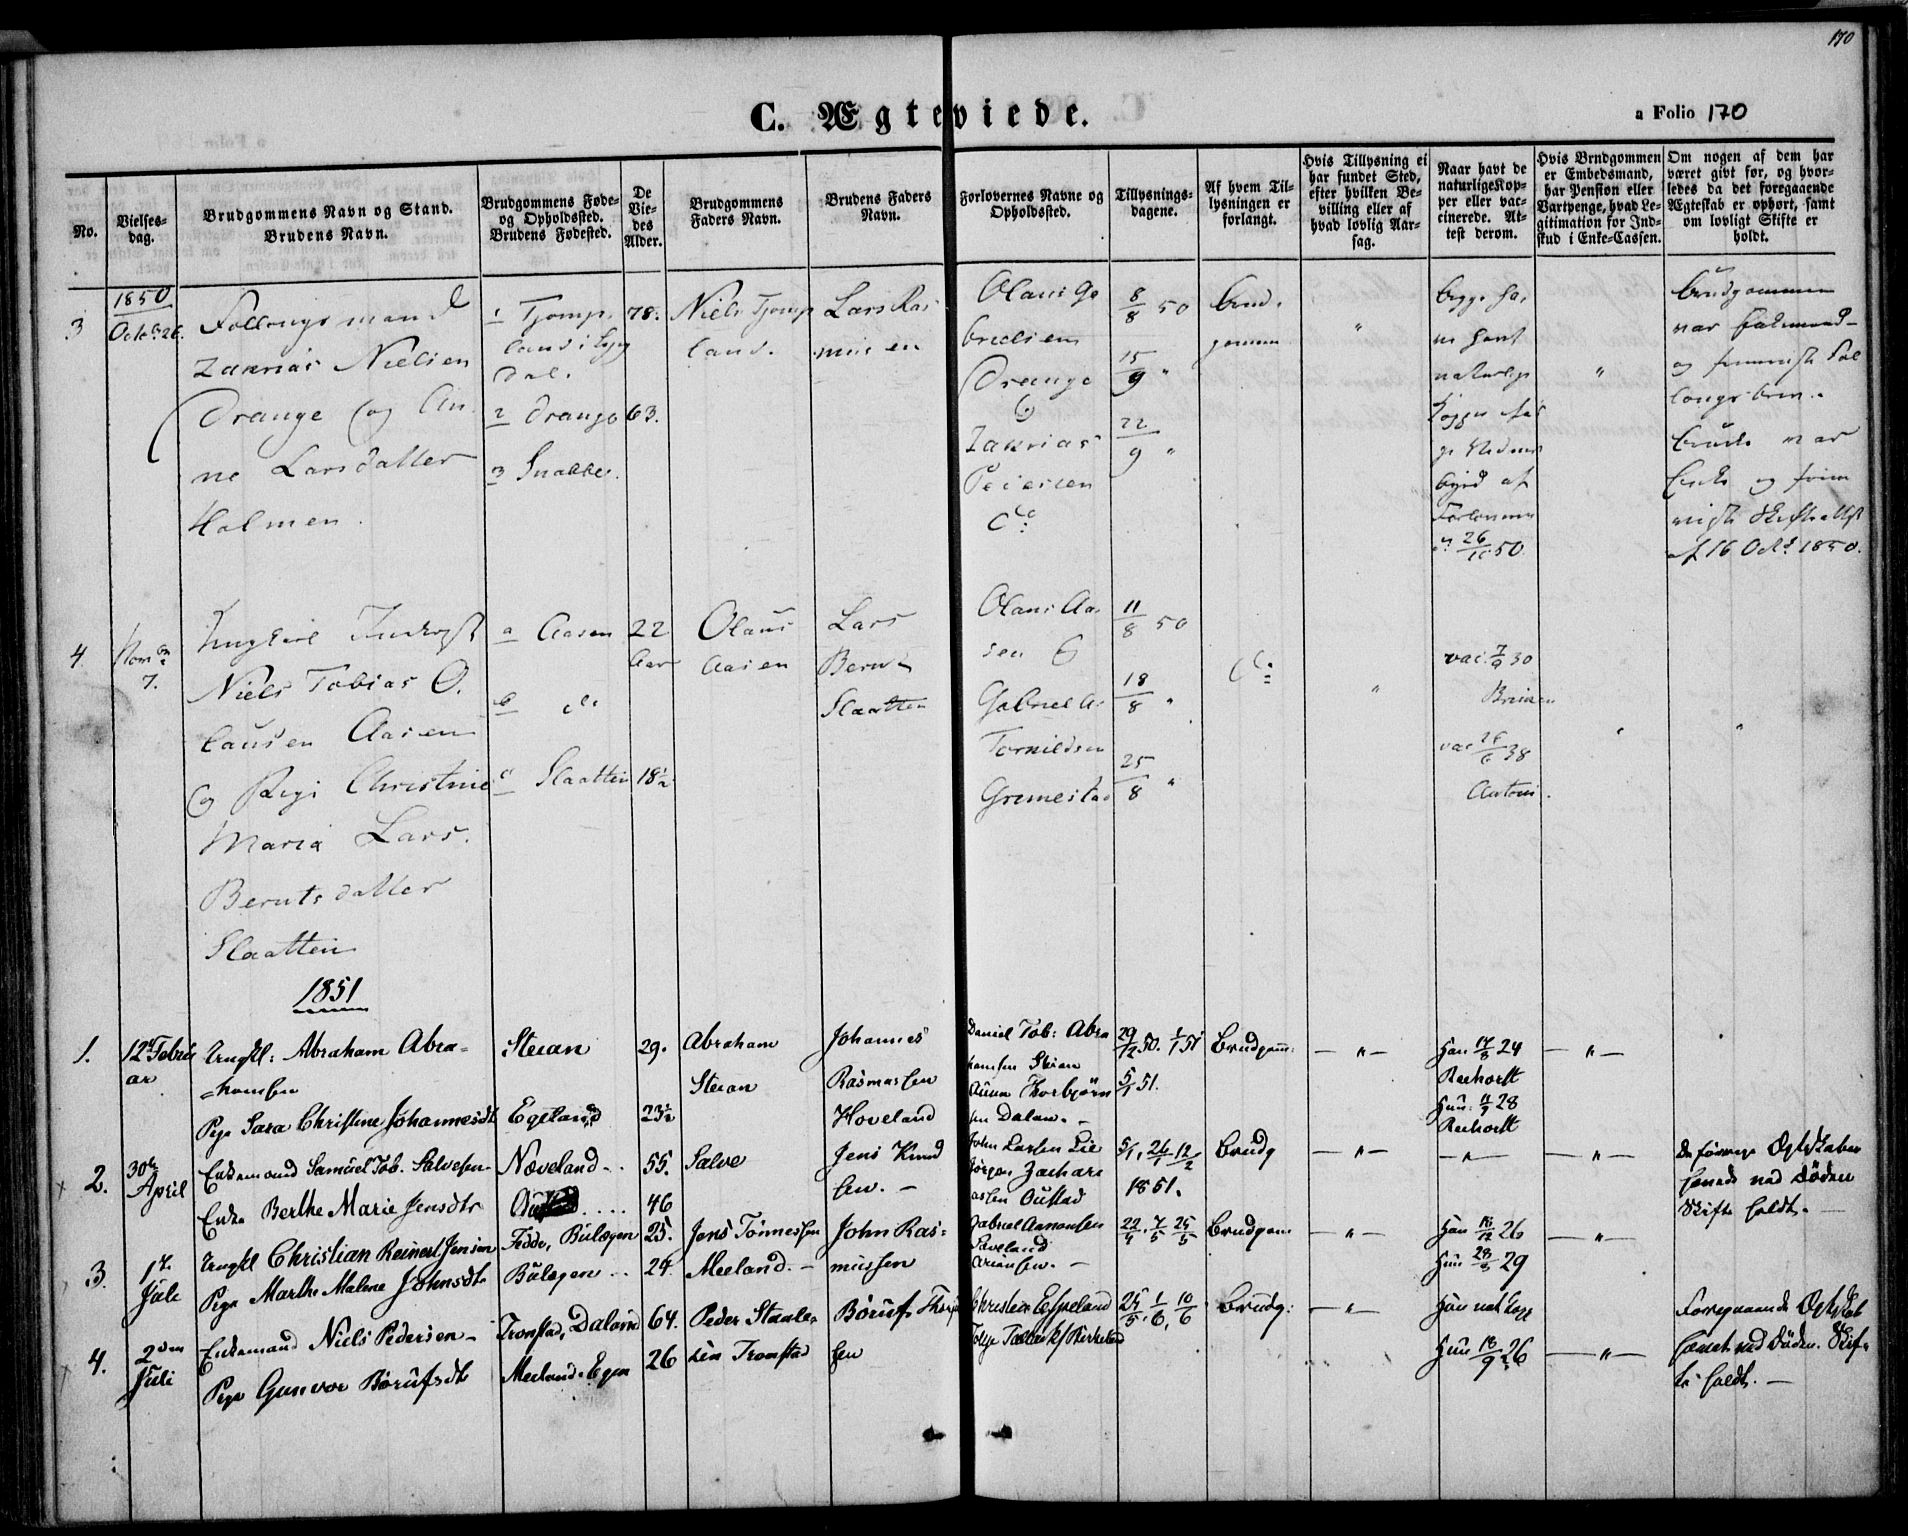 170
C. Ægteviede.
a Folio 170
No.
Vielses-
dag.
Brudgommens Navn og Stand.
Brudens Navn.
Brudgommens Føde-
og Opholdssted.
Brudens Fødested.
De
Vie-
des
Alder.
Brudgommens
Faders Navn.
Brudens Faders
Navn.
Forlovernes Navne og
Opholdssted.
Tillysnings-
dagene.
Af hvem Til-
lysningen er
forlangt.
Hvis Tillysning ei
har fundet Sted,
efter hvilken Be-
villing eller af
hvad lovlig Aar-
sag.
Naar havt de
naturlige Kop-
per eller vac-
cinerede. At-
test derom.
Hvis Brudgommen
er Embedsmand,
har Pension eller
Vartpenge, hvad Le-
gitimation for Ind-
skud i Enke-Cassen.
Om nogen af dem har
været gift før, og hvor-
ledes da det foregaaende
Ægteskab er ophørt, samt
om lovligt Skifte er
holdt.
1850
3
Octob. 26.
Follougsmand
Zakrias Nielsen
Drange og An
ne Larsdatter
Holmen.
1 Tjomp.
land i Lyg
dal.
2 Drange
3 Snabbe.
78.
63.
Niels Tjomp
land.
Lars Ras
musen
Olaus Ga
brielsen
Drange
&
Zakrias
Petersen
do
8/8 50
15/9 "
22/9 "
Brud.
gommen
"
Begge ha,
ve havt
naturlige
Kopper
af
Forloverne
26/10 50
"
Brudgommen
var Enkemand
og
Bruden var
Enke og
af 16 Oct. 1850.
4.
Novbr
7.
Ungkarl
Niels Tobias O.
lausen Aasen
og Pige Christine
Maria Lars.
Berntsdatter
Slaatten
a Aasen
b do
c Slaatten
22
Aar
18½
Olaus
Aasen
Lars
Bernt
Slaatten
Olaus Aa
sen &
Gabriel A.
Tornildsen
Grimestad
11/8 50
18/8 "
25/8 "
do
"
vac. 7/9 30
vac 26/6 38
"
"
1851
1.
12te Febru
ar
Ungkl: Abraham Abra-
hamsen
Pige Sara Christine Johannesdt
Steian
Egeland
29.
23½
Abraham
Steian
Johannes
Rasmussen
Hoveland
Daniel Tob: Abra
hamsen Steian
Thorbjørn
sen Dalan. -
29/12 50. 1/1 51
5/1 51.
Brudgom:
— " —
Han 14/8 24
Reehorst
Hun: 11/9 28
Reehorst
— " —
2.
30te
April
Enkemand Samuel Tob. Salvesen
Enke Berthe Marie Jensdtr
Næveland
55.
46
Salve
Jens Knud
sen. -
John Larsen Lie
Jørgen Zachari
assen Oustad
5/1. 26/1 12/2
1851.
Brudg
— " —
— " —
— " —
De forrige Ægteskaber
hævede ved Døden
Skifte holdt. —
3.
1te
Juli
Ungkl Christian Reinert Jensen
Pige Marthe Malene Johnsdt.
Fedde, Bulægen
Bulægen
25.
24.
Jens Tønnessen
Meeland. -
John Ras-
mussen
Gabriel Aanensen
22/4. 4/5 25/5
Brudgom
— " —
Han 18/12 26
Hun 28/8 29
— " —
4.
2den
Juli
Enkemand Niels Pedersen
Pige Gunvor Børufsdt
Tronstad, Daland
Meeland. Egen
64.
26
Peder Staale
sen Tronstad
Børuf
sen
Christen Espeland
25/5. 1/6, 10/6
Brudg:
— " —
Han nat Kopp
Hun 18/9 26
— " —
Foregaaende Ægteskab
hævet ved Døden. Skif-
te holdt. —